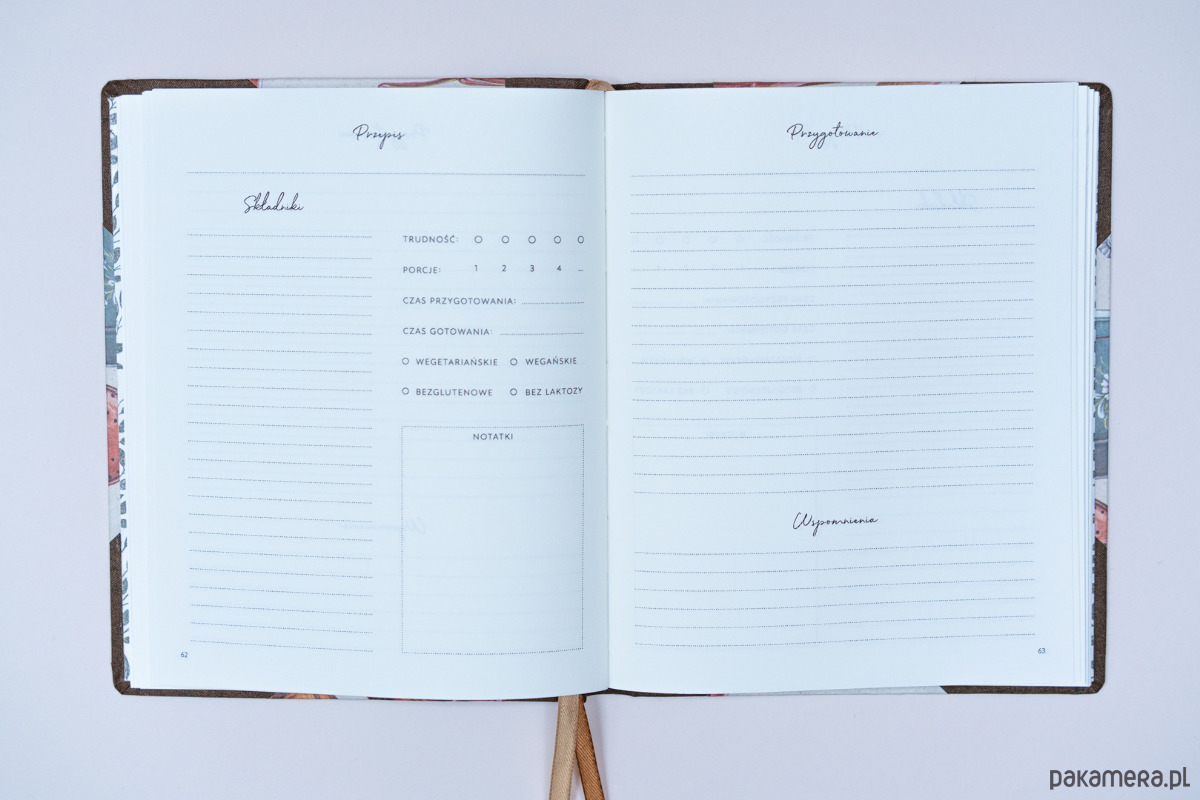 Przepis
Składniki
TRUDNOŚĆ:
PORCJE: 1 2 3 4 ...
CZAS PRZYGOTOWANIA:
CZAS GOTOWANIA:
WEGETARIAŃSKIE WEGAŃSKIE
BEZGLUTENOWE BEZ LAKTOZY
NOTATKI
62
Przygotowanie
Wspomnienia
63
pakamera.pl